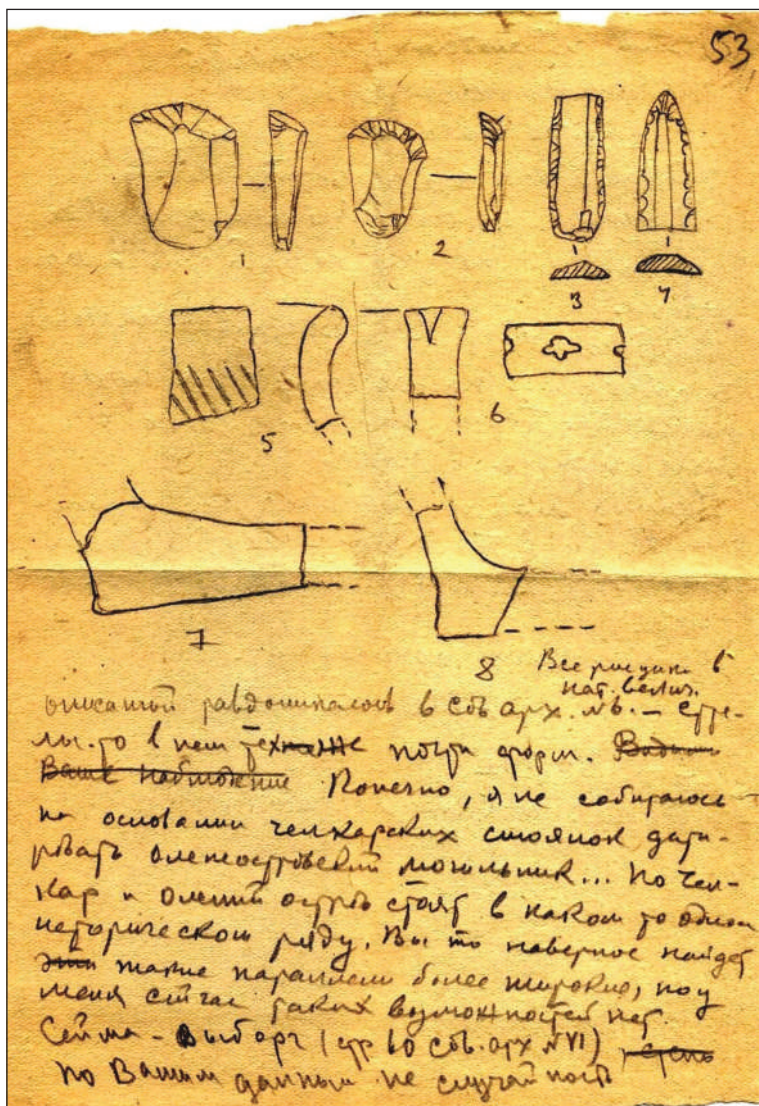 53
1 2 3 4
5 6
7 8
Все рисунки в
нат. велич.
описаний равдоникасов в Сов арх. №6. – Стре-
лы-то в нем те же почти форм.
Ваше наблюдение Конечно, я не собираюсь
на основании челкарских стоянок дати-
ровать оленеостровский могильник... Но Чел-
кар и олений остров стоят в каком то одном
историческом ряду. Вы то наверное найдет
эти такие параллели более широко, но у
меня сейчас таких возможностей нет.
Сейма – Выборг (стр 60 Сов. арх №VI)
по Вашим данным не случайность